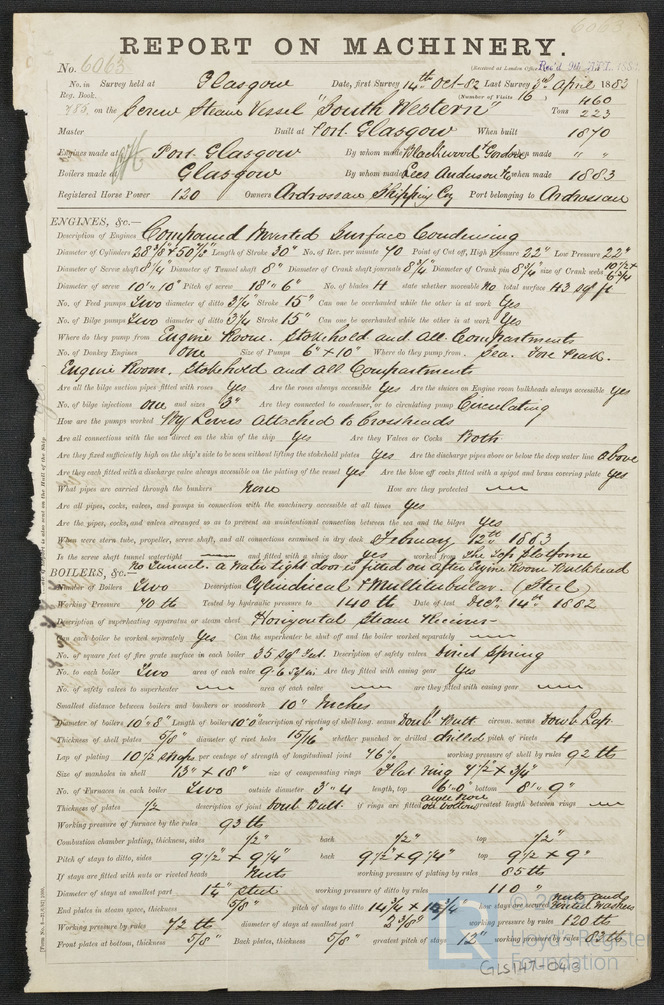 6063
REPORT ON MACHINERY.
No. 6063
(Received at London Office
No. in Survey held at Glasgow Date, first Survey 14th Oct-82 Last Survey 3rd April 1883
Reg. Book. (Number of Visits 16) 460
on the Screw Steam Vessel "South Western" Tons 223
Master Built at Port Glasgow When built 1870
Engines made at Port Glasgow By whom made Blackwood & Gordon when made " "
Boilers made at Glasgow By whom made Lees Anderson & Co when made 1883
Registered Horse Power 120 Owners Ardrossan Shipping Coy Port belonging to Ardrossan
ENGINES, &c.—
Description of Engines Compound Inverted Surface Condensing
Diameter of Cylinders 28 3/8" & 50 1/2" Length of Stroke 30" No. of Rev. per minute 70 Point of Cut off, High Pressure 22" Low Pressure 22"
Diameter of Screw shaft 8 1/4 Diameter of Tunnel shaft 8" Diameter of Crank shaft journals 8 3/4 Diameter of Crank pin 8 3/4 size of Crank webs 10 1/2 x 6 3/4
Diameter of screw 10"10" Pitch of screw 18"6" No. of blades 4 state whether moveable No total surface 43 sq ft
No. of Feed pumps Two diameter of ditto 3 1/4" Stroke 15" Can one be overhauled while the other is at work Yes
No. of Bilge pumps Two diameter of ditto 3 1/4 Stroke 15" Can one be overhauled while the other is at work Yes
Where do they pump from Engine Room. Stokehold and all Compartments
No. of Donkey Engines one Size of Pumps 6" x 10" Where do they pump from Sea. Fore Peak.
Engine Room. Stokehold and all Compartments
Are all the bilge suction pipes fitted with roses Yes Are the roses always accessible Yes Are the sluices on Engine room bulkheads always accessible Yes
No. of bilge injections one and sizes 3" Are they connected to condenser, or to circulating pump Circulating
How are the pumps worked By Levers attached to Crossheads
Are all connections with the sea direct on the skin of the ship Yes Are they Valves or Cocks Both
Are they fixed sufficiently high on the ship's side to be seen without lifting the stokehold plates Yes Are the discharge pipes above or below the deep water line above
Are they each fitted with a discharge valve always accessible on the plating of the vessel Yes Are the blow off cocks fitted with a spigot and brass covering plate Yes
What pipes are carried through the bunkers None How are they protected —
Are all pipes, cocks, valves, and pumps in connection with the machinery accessible at all times Yes
Are the pipes, cocks, and valves arranged so as to prevent an unintentional connection between the sea and the bilges Yes
When were stern tube, propeller, screw shaft, and all connections examined in dry dock February 12th 1883
Is the screw shaft tunnel watertight — and fitted with a sluice door yes worked from The Top Platform
No Tunnel. a Water tight door is fitted on after Engine Room Bulkhead
BOILERS, &c.—
Number of Boilers Two Description Cylindrical & Multitubular. (Steel)
Working Pressure 70 lb Tested by hydraulic pressure to 140 lb Date of test Decr. 14th 1882
Description of superheating apparatus or steam chest Horizontal Steam Receiver
Can each boiler be worked separately Yes Can the superheater be shut off and the boiler worked separately —
No. of square feet of fire grate surface in each boiler 35 sq feet. Description of safety valves Direct Spring
No. to each boiler Two area of each valve 9.6 sq in Are they fitted with easing gear Yes
No. of safety valves to superheater — area of each valve — are they fitted with easing gear —
Smallest distance between boilers and bunkers or woodwork 10" Inches
Diameter of boilers 10"8" Length of boilers 10"0" description of riveting of shell long. seams Doub Butt circum. seams Doub Lap
Thickness of shell plates 5/8" diameter of rivet holes 15/16" whether punched or drilled drilled pitch of rivets 4
Lap of plating 10 1/2 straps per centage of strength of longitudinal joint 76% working pressure of shell by rules 92 lb
Size of manholes in shell 13" x 18" size of compensating rings Flat ring 7 1/2 x 3/4"
No. of Furnaces in each boiler Two outside diameter 3"4 length, top 6"0" bottom 8" 9"
Thickness of plates 1/2 description of joint Doub Butt if rings are fitted greatest length between rings —
Working pressure of furnace by the rules 93 lb
Combustion chamber plating, thickness, sides 1/2" back 1/2" top 1/2"
Pitch of stays to ditto, sides 9 1/2 x 9 1/4" back 9 1/2 x 9 1/4" top 9 1/2 x 9"
If stays are fitted with nuts or riveted heads Nuts working pressure of plating by rules 85 lb
Diameter of stays at smallest part 1 1/4" Steel working pressure of ditto by rules 110 "
End plates in steam space, thickness 5/8" pitch of stays to ditto how stays are secured nuts and riveted washers
Working pressure by rules 72 lb diameter of stays at smallest part 2 3/8" working pressure by rules 120 lb
Front plates at bottom, thickness 5/8" Back plates, thickness 5/8" greatest pitch of stays 12" working pressure by rules 83 lb
Lloyd's Register
Foundation
GLS147-0413